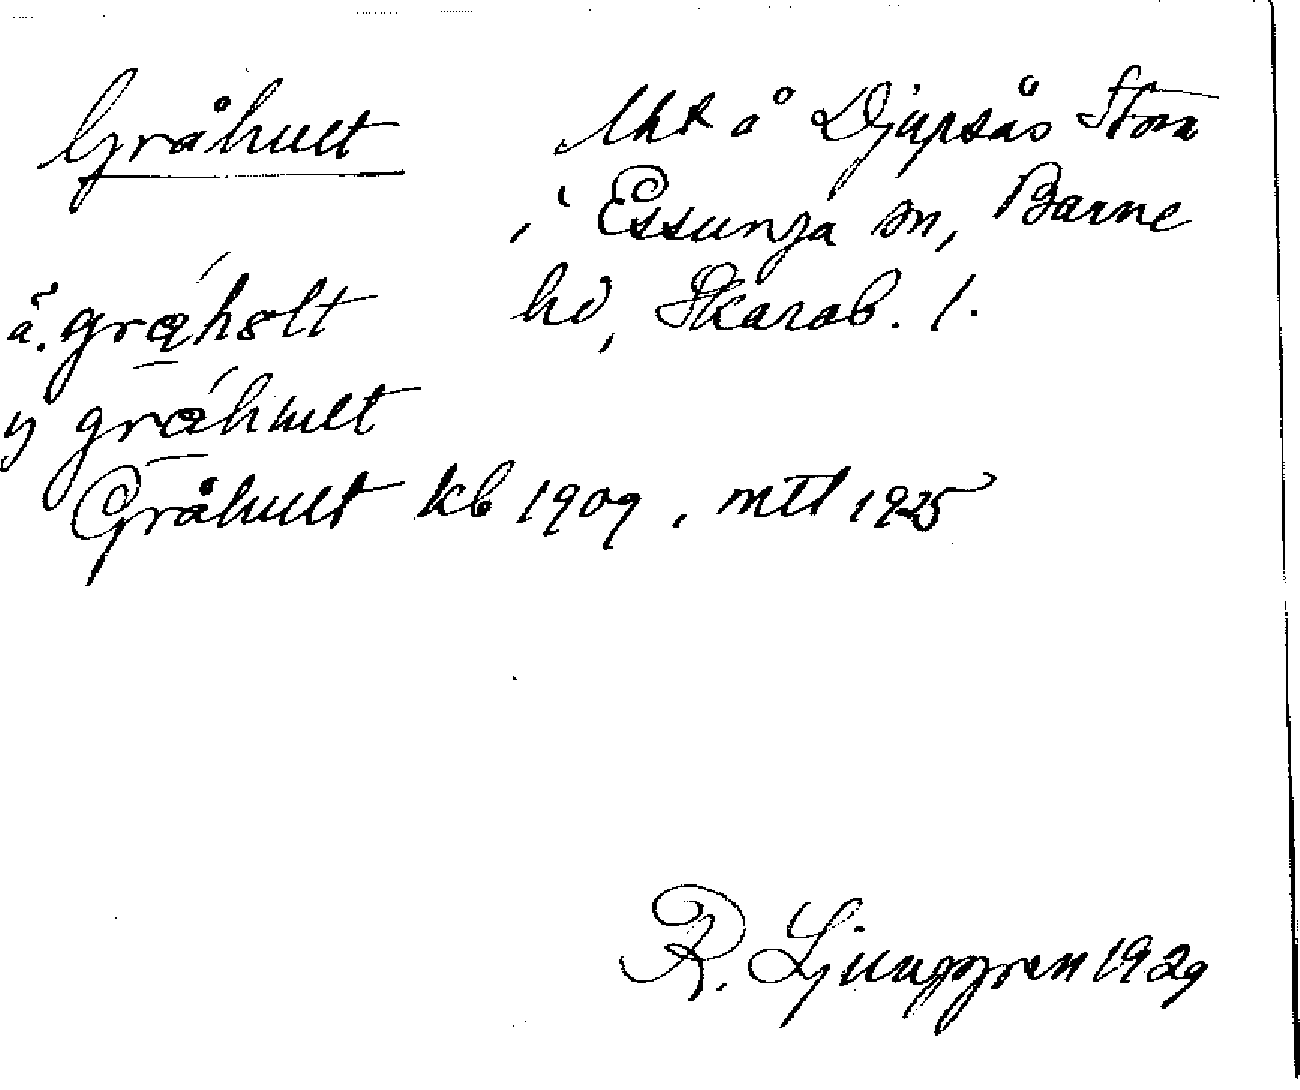 Gråhult Uht å Djupsås Stora
i Essunga sn, Barne
hd, Skarab. l.
ä. gråholt
y gråhult
Gråhult kb 1909, mtl 1925
R. Ljunggren 1929